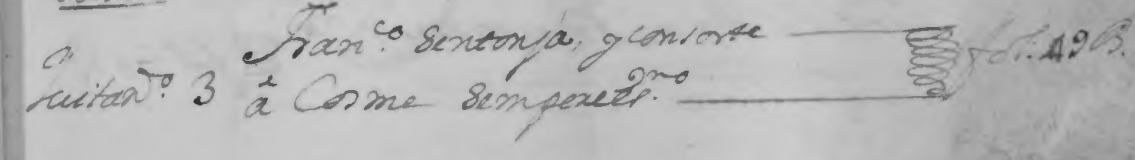 Fran.co Sentonja, y consorte fol: 49 B.
Quitan.o 3 â Cosme Sempere es.no